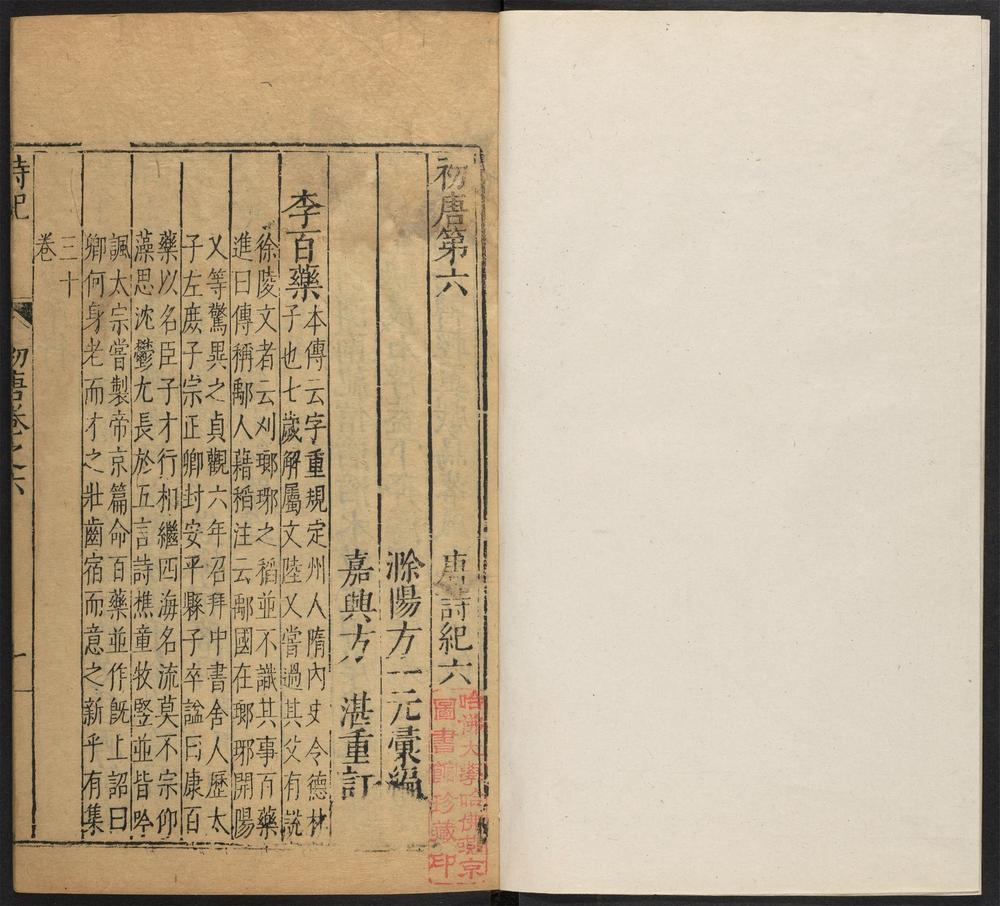 初唐第六 唐詩紀六
滁陽方一元彙編
嘉興方 湛重訂
李百藥本傳云字重規定州人隋內史令德林
子也七歲解屬文陸乂嘗過其父有説
徐陵文者云刈瑯琊之稻並不識其事百藥
進曰傳稱鄅人藉稻注云鄅國在瑯琊開陽
乂等驚異之貞觀六年召拜中書舍人歷太
子左庶子宗正卿封安平縣子卒謚曰康百
藥以名臣子才行相繼四海名流莫不宗仰
藻思沈鬱尤長於五言詩樵童牧豎並皆吟
諷太宗嘗製帝京篇命百藥並作旣上詔曰
卿何身老而才之壯齒宿而意之新乎有集
三十
卷
詩紀 初唐卷之六 一
哈佛大學哈佛燕京
圖書館珍藏印